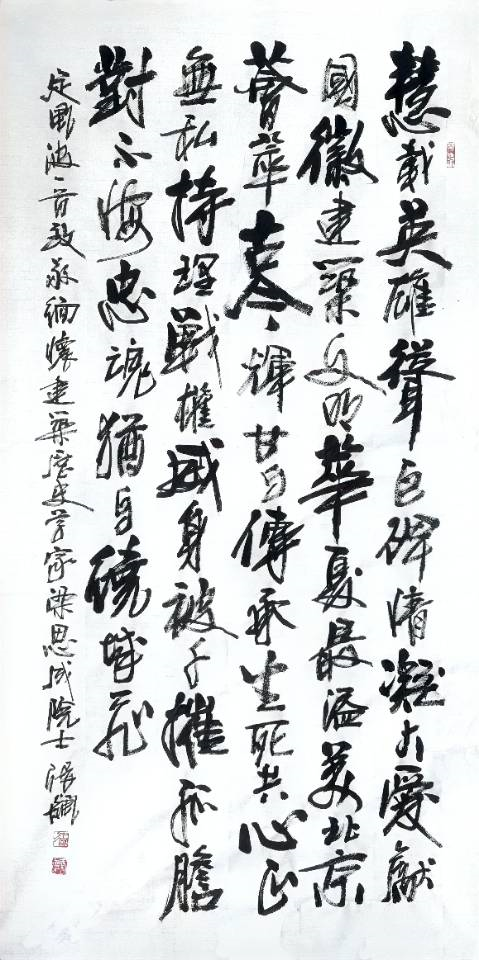 慧載英雄聳巨碑情凝大愛獻
國徽建築文明華夏最溢美北京
薈萃古今輝廿自傳承生死共心正
無私持理戰權威身被千摧孤膽
對不悔忠魂猶自繞城飛
定風波一首致敬緬懷建築歷史学家梁思成院士 張